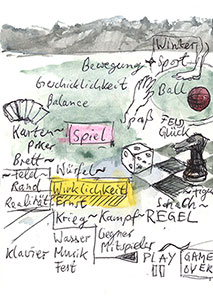 Winter
Bewegung Sport
Geschicklichkeit
Balance
Ball
Spaß
FELD
Glück
Karten
Spiel
Poker
Brett~
~Feld~
Würfel~
Rand
Wirklichkeit
Realität
Ernst
Schach~
Krieg~ Kampf~ REGEL
Wasser
Gegner
Mitspieler
Klavier Musik
Fest
PLAY
GAME
OVER